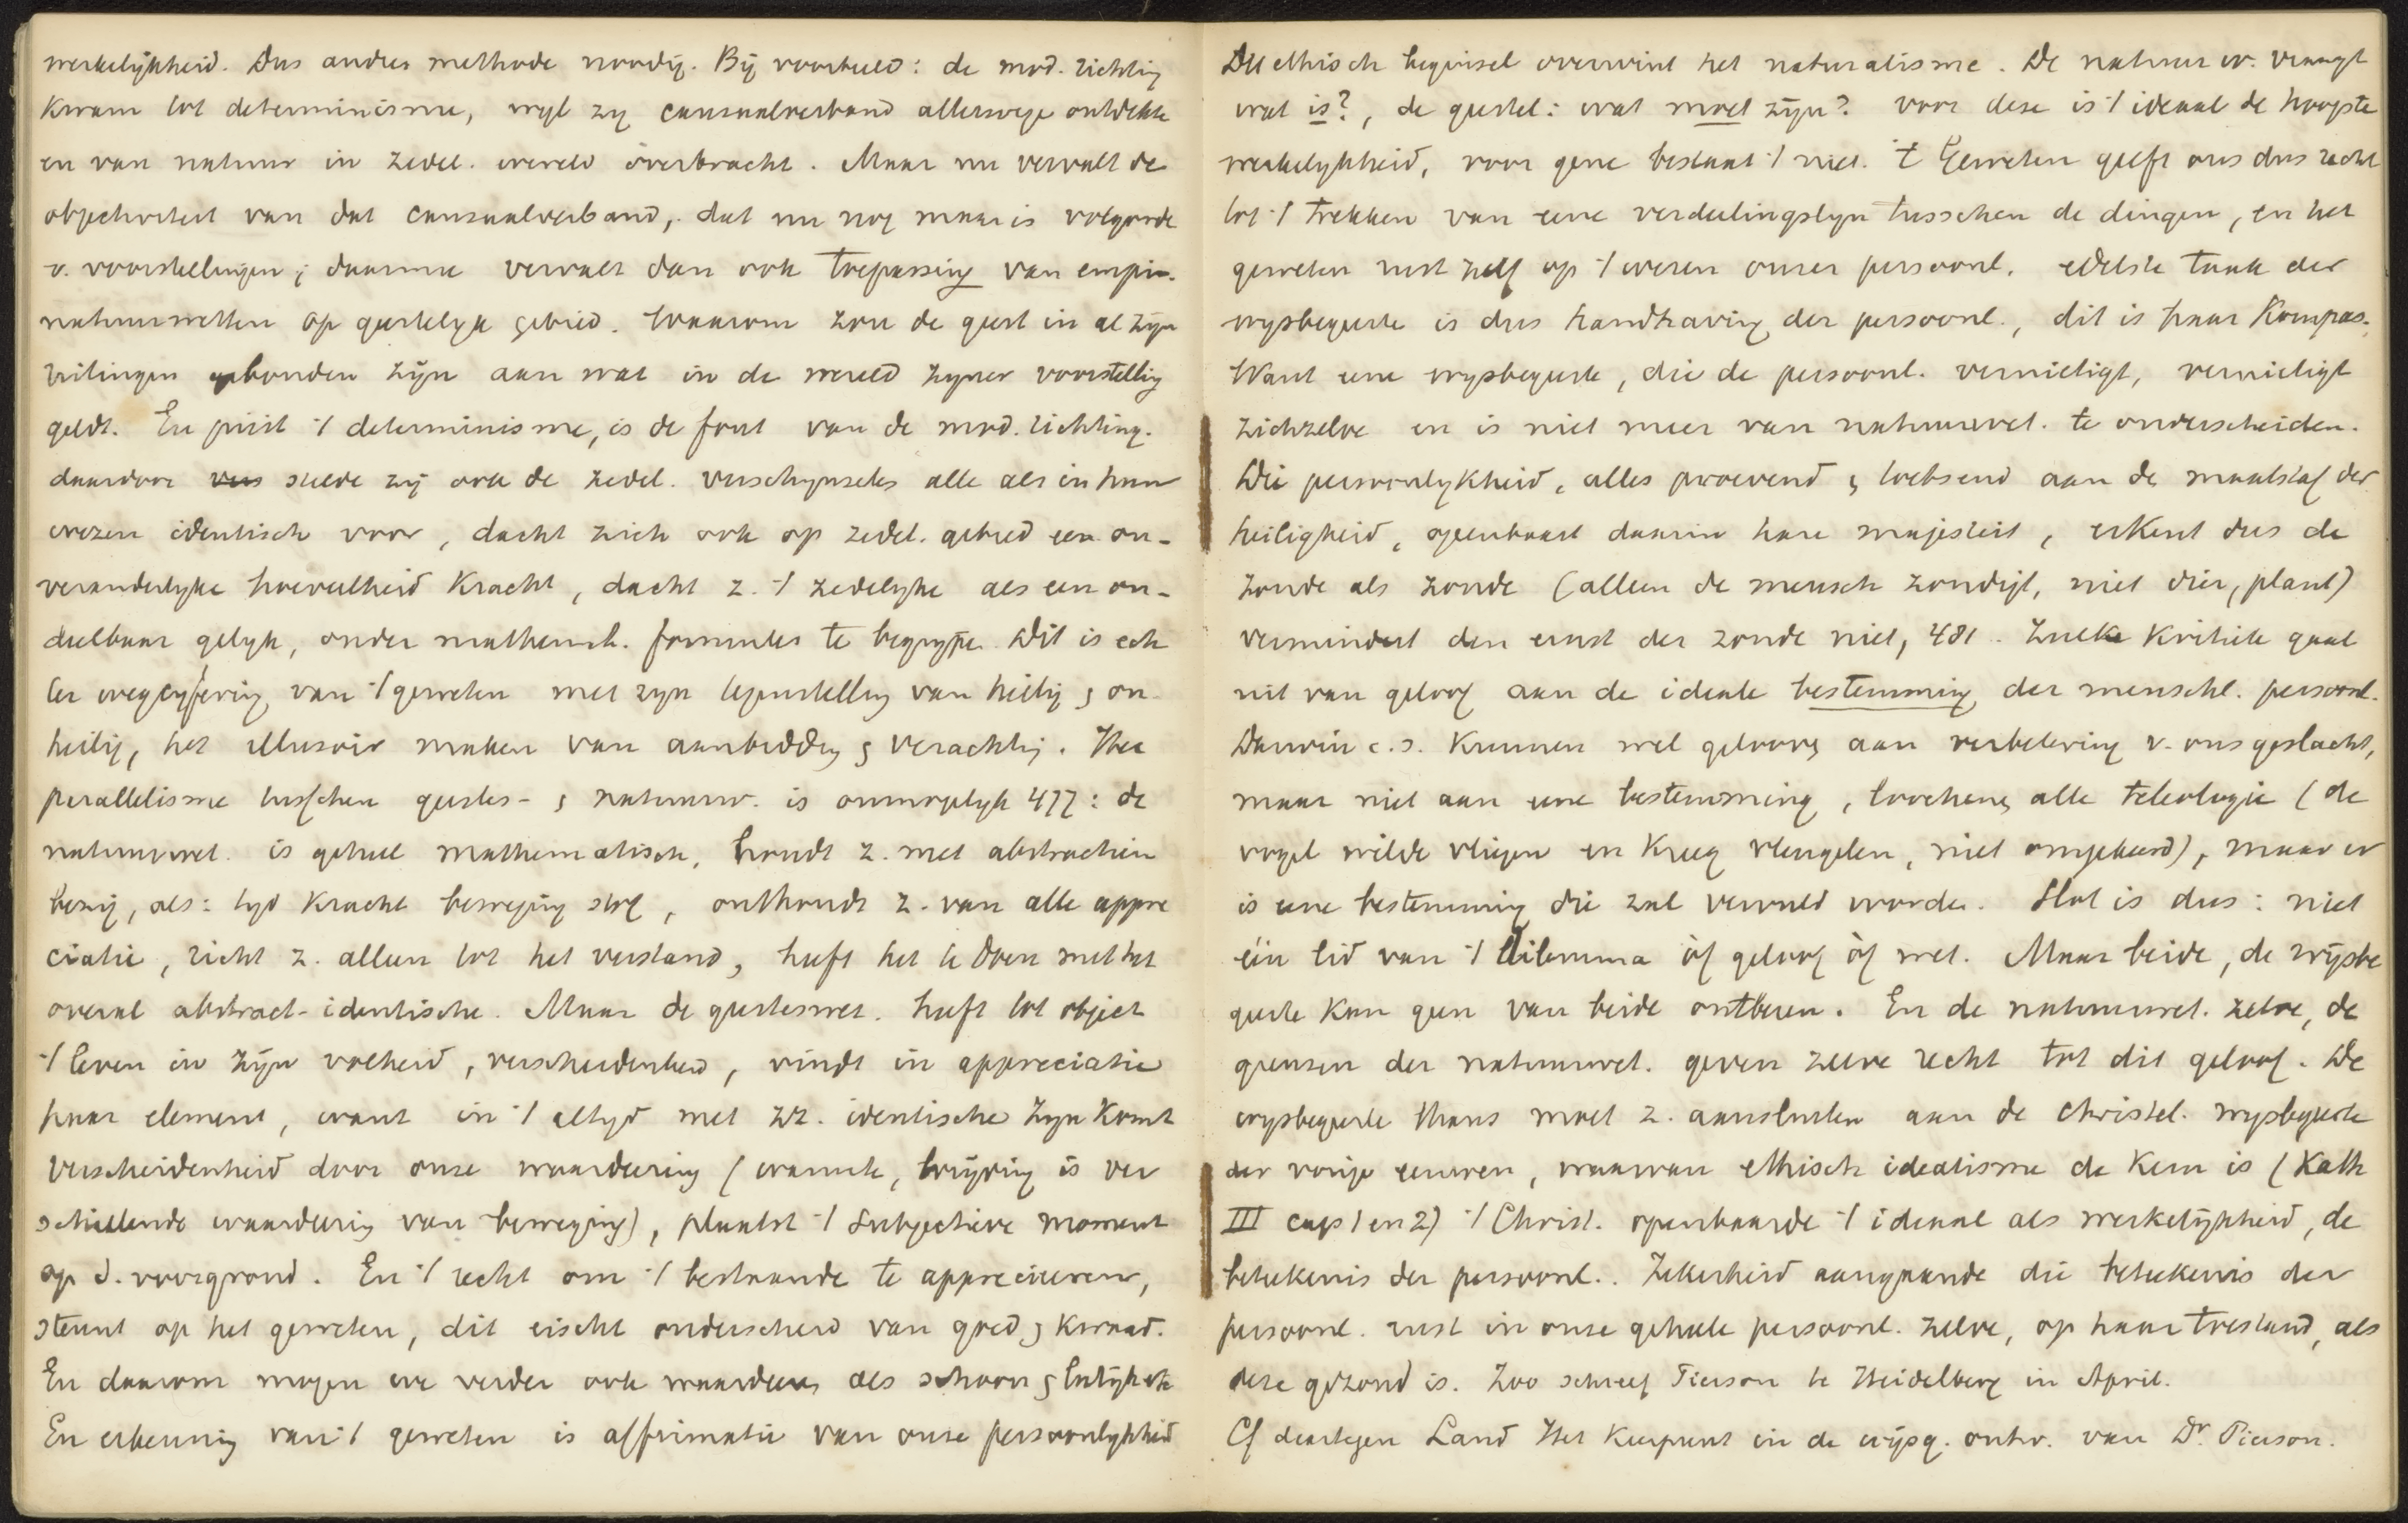 werkelijkheid. Dus andere methode noodig. Bij voorbeeld: de mod. richting
kwam tot determinisme, wijl zij causaalverband allerwege ontdekte
en van natuur in zedel. wereld overbracht. Maar nu vervalt de
objectiviteit van dat causaalverband, dat nu nog maar is volgorde
v. voorstellingen; daarmee vervalt dan ook toepassing van empir.
natuurwetten op geestelijk gebied. Waarom zou de geest in al zijn
uitingen gebonden zijn aan wat in de wereld zijner voorstelling
geldt. En juist 't determinisme, is de fout van de mod. richting.
daardoor stelde zij ook de zedel. verschijnselen alle als in hun
wezen identisch voor, dacht zich ook op zedel. gebied een on-
veranderlijke hoeveelheid kracht, dacht z. 't zedelijke als een on-
deelbaar gelijk, onder mathemat. formules te begrijpen. Dit is ech
ter wegcijfering van 't geweten met zijn tegenstelling van heilig & on-
heilig, het illusoir maken van aanbidding & verachting. Het
parallelisme tusschen geestes- & natuurw. is onmogelijk 477: de
natuurwet. is geheel mathematisch, houdt z. met abstractien
bezig, als: tijd kracht beweging stof, onthoudt z. van alle appre
ciatie, richt z. alleen tot het verstand, heeft het te doen met het
overal abstract-identische. Maar de geesteswet. heeft tot object
't leven in zijn volheid, verscheidenheid, vindt in appreciatie
haar element, want in 't altijd met zz. identische zijn komt
verscheidenheid door onze waardeering (warmte, wrijving is ver
schillende waardeering van beweging), plaatst 't subjectieve moment
op d. voorgrond. En 't recht om 't bestaande te apprecieeren,
steunt op het geweten, dit eischt onderscheid van goed & kwaad.
En daarom mogen we verder ook waardeeren als schoon & leelijk etc
En erkenning van 't geweten is affirmatie van onze persoonlijkheid
Dit ethisch beginsel overwint het naturalisme. De natuur w. vraagt
wat is?, de geestel: wat moet zijn? voor deze is 't ideaal de hoogste
werkelijkheid, voor gene bestaat 't niet. 't Geweten geeft ons dus recht
tot 't trekken van eene verdeelingslijn tusschen de dingen, en het
geweten rust zelf op 't wezen onzer persoonl. edelste taak der
wijsbegeerte is dus handhaving der persoonl., dit is haar kompas.
Want eene wijsbegeerte, die de persoonl. vernietigt, vernietigt
zichzelve en is niet meer van natuurwet. te onderscheiden.
Die persoonlijkheid, alles proevend & toetsend aan de maatstaf der
heiligheid, openbaart daarin hare majesteit, erkent dus de
zonde als zonde (alleen de mensch zondigt, niet dier, plant)
vermindert den ernst der zonde niet, 481. Zulke kritiek gaat
uit van geloof aan de ideale bestemming der menschl. persoonl.
Darwin c.s. kunnen wel gelooven aan verbetering v. ons geslacht,
maar niet aan eene bestemming, loochenen alle teleologie (de
vogel wilde vliegen en kreeg vleugelen, niet omgekeerd), maar er
is eene bestemming die zal vervuld worden. Slot is dus: niet
één lid van 't dilemma òf geloof òf wet. Maar beide, de wijsbe
geerte kan geen van beide ontberen. En de natuurwet. zelve, de
grenzen der natuurwet. geven zelve recht tot dit geloof. De
wijsbegeerte thans moet z. aansluiten aan de christel. wijsbegeerte
der vorige eeuwen, waarvan ethisch idealisme de kern is (Kath
III cap 1 en 2) 't Christ. openbaarde 't ideaal als werkelijkheid, de
beteekenis der persoonl.. Zekerheid aangaande die beteekenis der
persoonl. rust in onze geheele persoonl. zelve, op haar toestand, als
deze gezond is. Zoo schreef Pierson te Heidelberg in April.
Cf daartegen Land Het keerpunt in de wijsg. ontw. van Dr. Pierson.